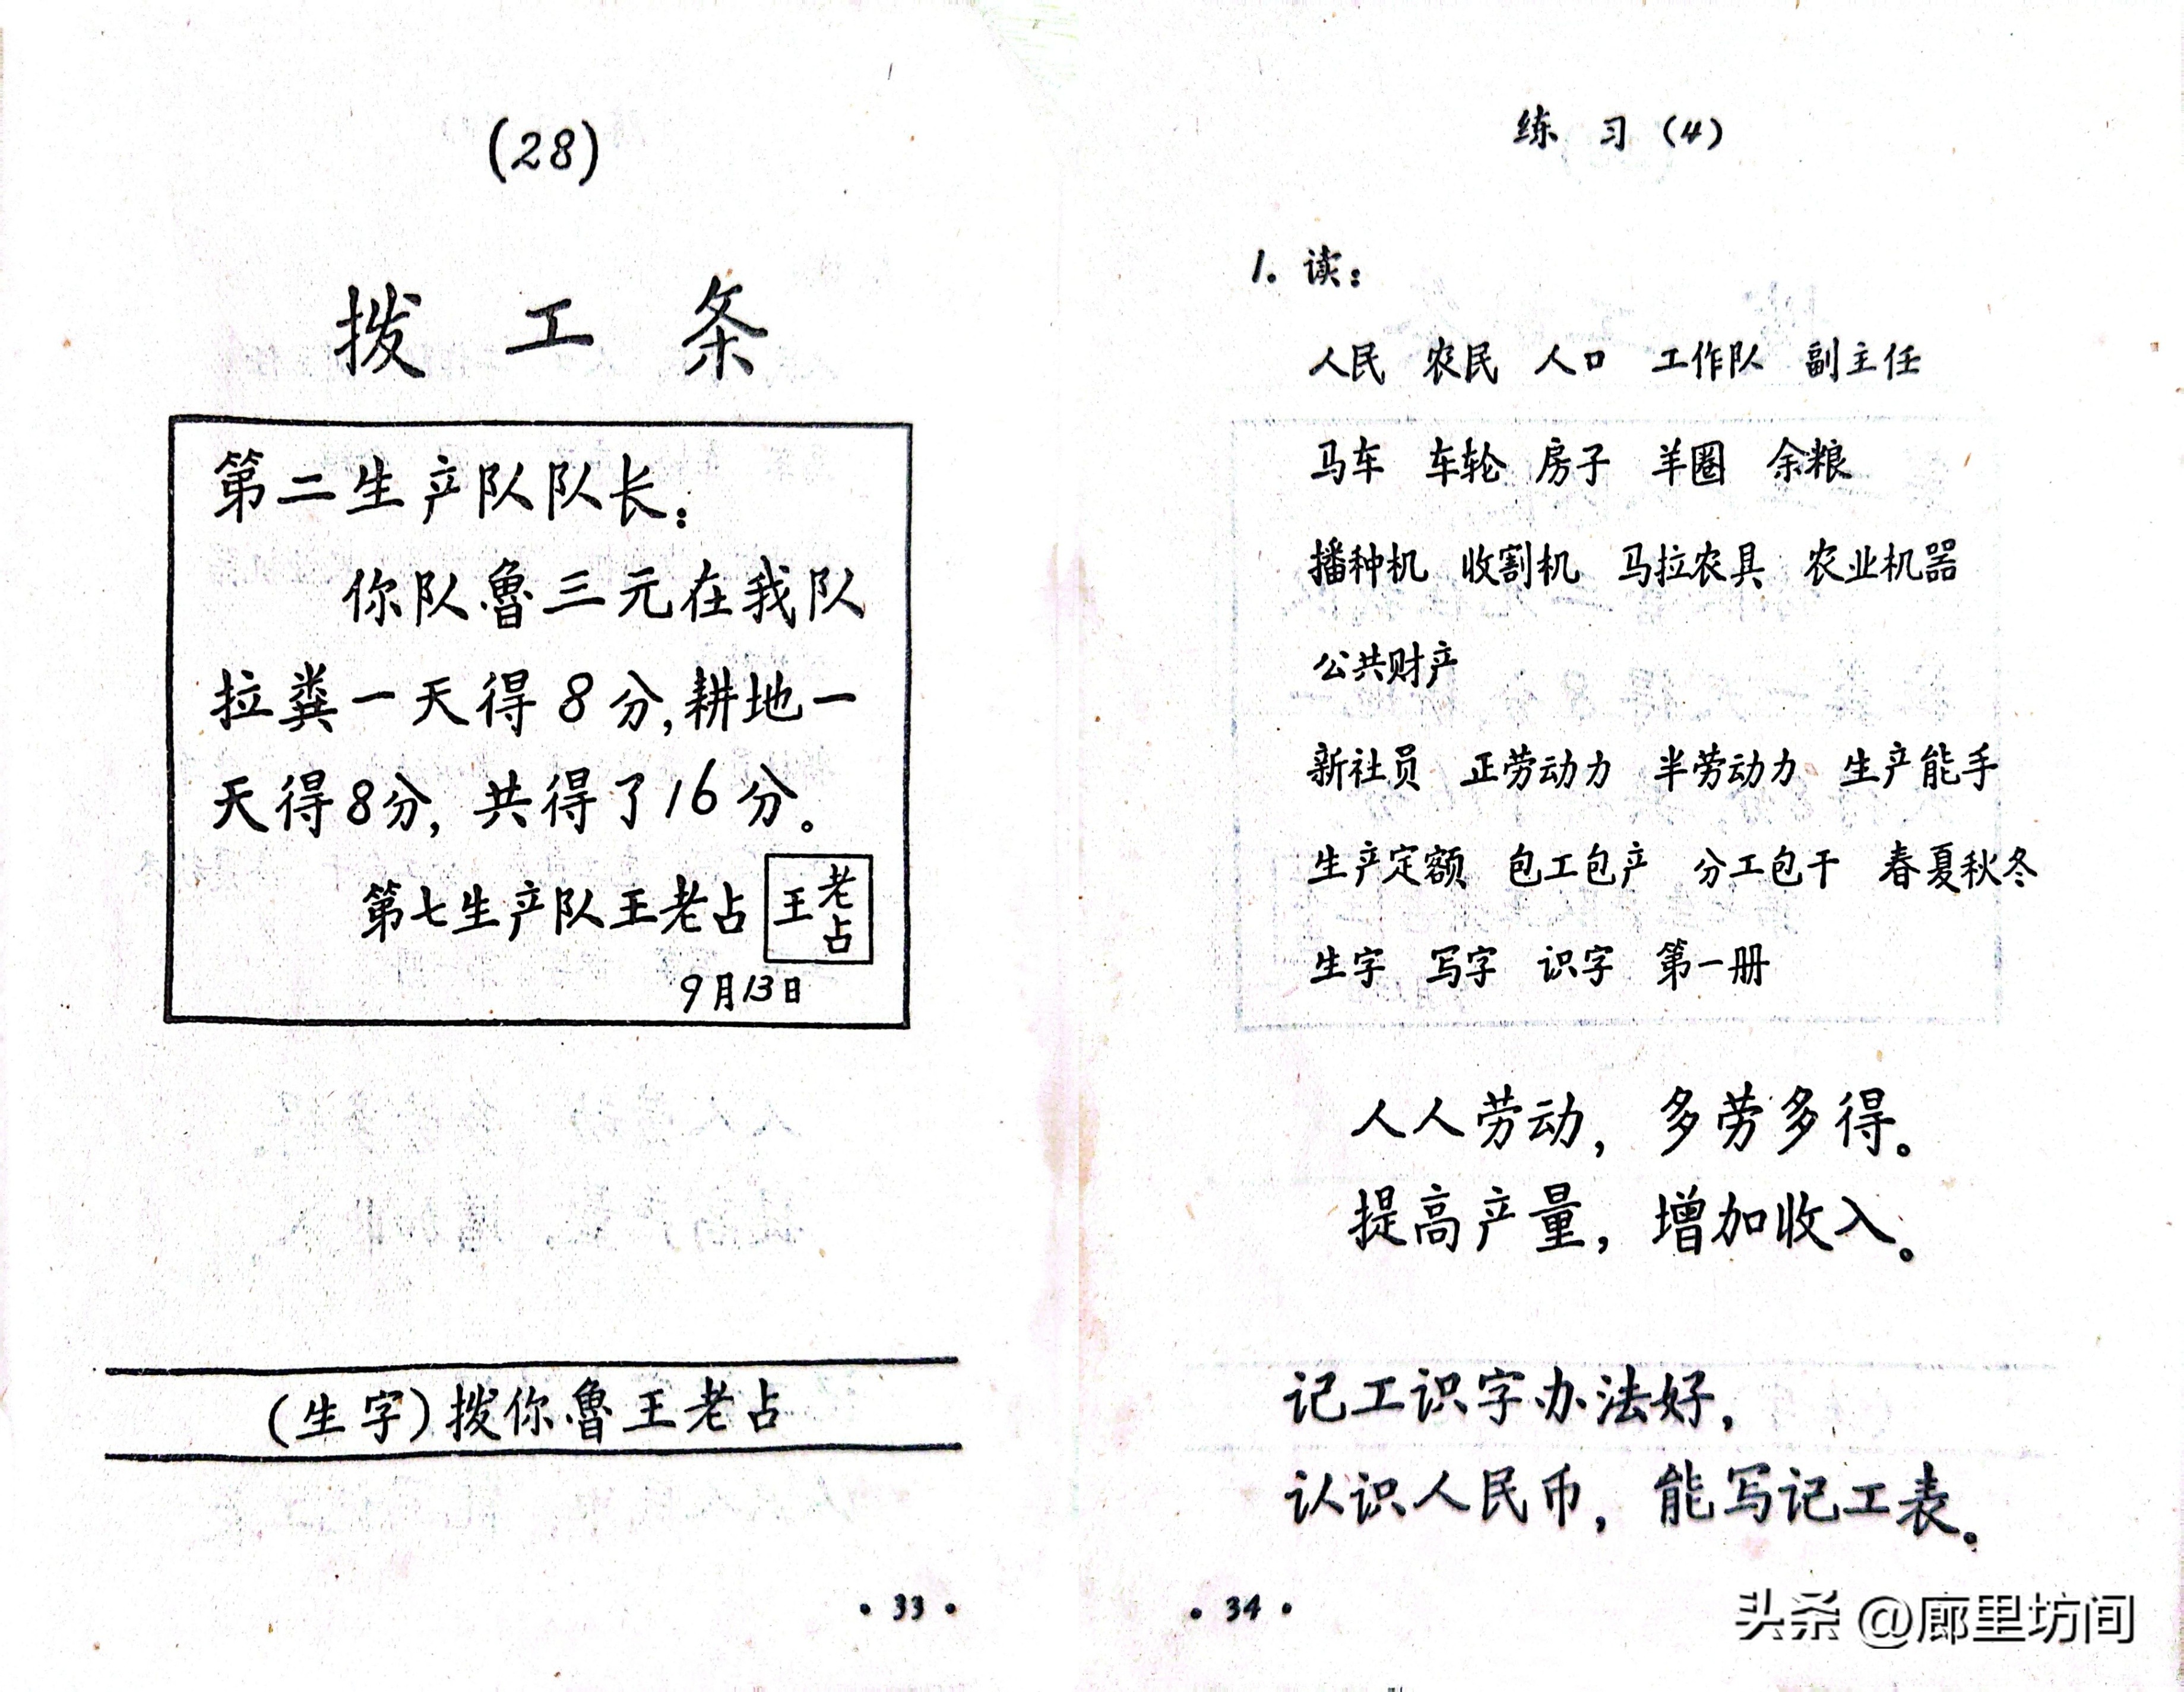 (28)
拨 工 条
第二生产队队长：
你队魯三元在我队
拉粪一天得8分,耕地一
天得8分, 共得了16分。
第七生产队王老占 王老占
9月13日
(生字)拨你魯王老占
• 33 •
练 习 (4)
1. 读：
人民 农民 人口 工作队 副主任
马车 车轮 房子 羊圈 余粮
播种机 收割机 马拉农具 农业机器
公共财产
新社员 正劳动力 半劳动力 生产能手
生产定额 包工包产 分工包干 春夏秋冬
生字 写字 识字 第一册
人人劳动, 多劳多得。
提高产量, 增加收入。
记工识字办法好,
认识人民币, 能写记工表。
• 34 •
头条 @廊里坊间